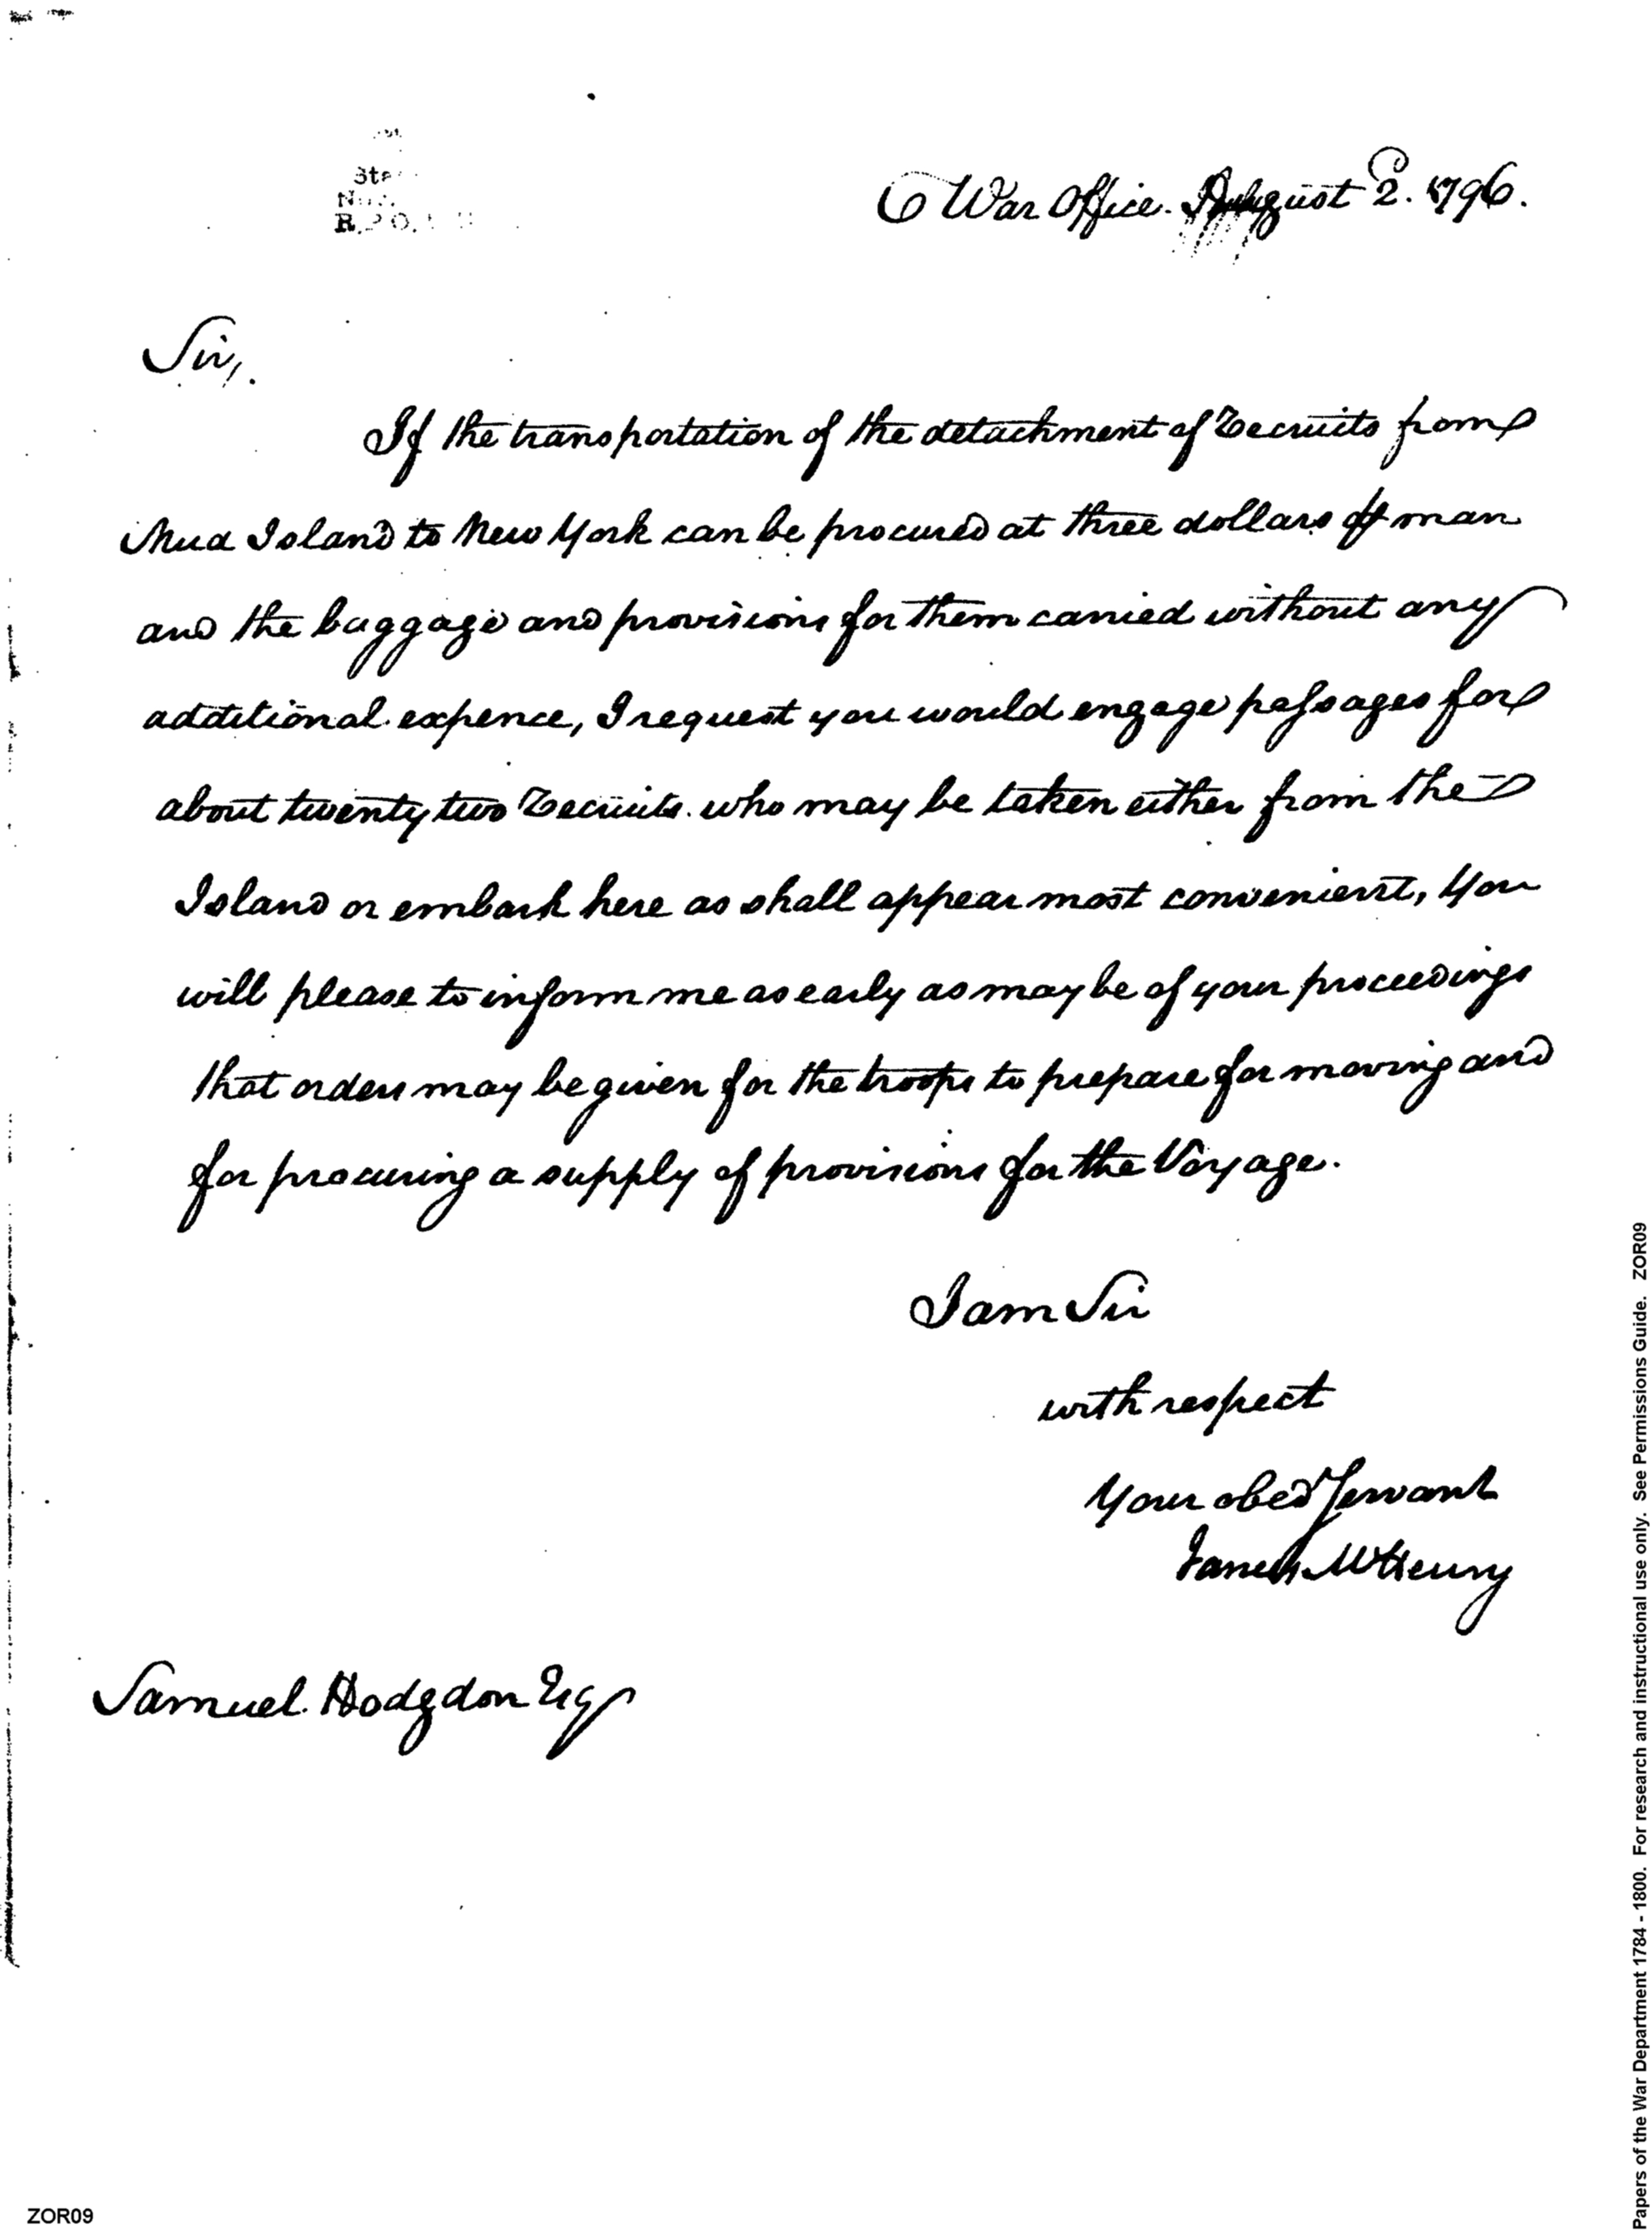 War Office. August 2. 1796.
Sir,
If the transportation of the detachment of Recruits from
Mud Island to New York can be procured at three dollars ⅌ man
and the baggage and provisions for them carried without any
additional expence, I request you would engage passages for
about twenty two Recruits who may be taken either from the
Island or embark here as shall appear most convenient, You
will please to inform me as early as may be of your proceedings
that orders may be given for the troops to prepare for moving and
for procuring a supply of provisions for the Voyage.
I am Sir
with respect
Your obed Servant
James McHenry
Samuel Hodgdon Esq
ZOR09
Papers of the War Department 1784 - 1800. For research and instructional use only. See Permissions Guide. ZOR09